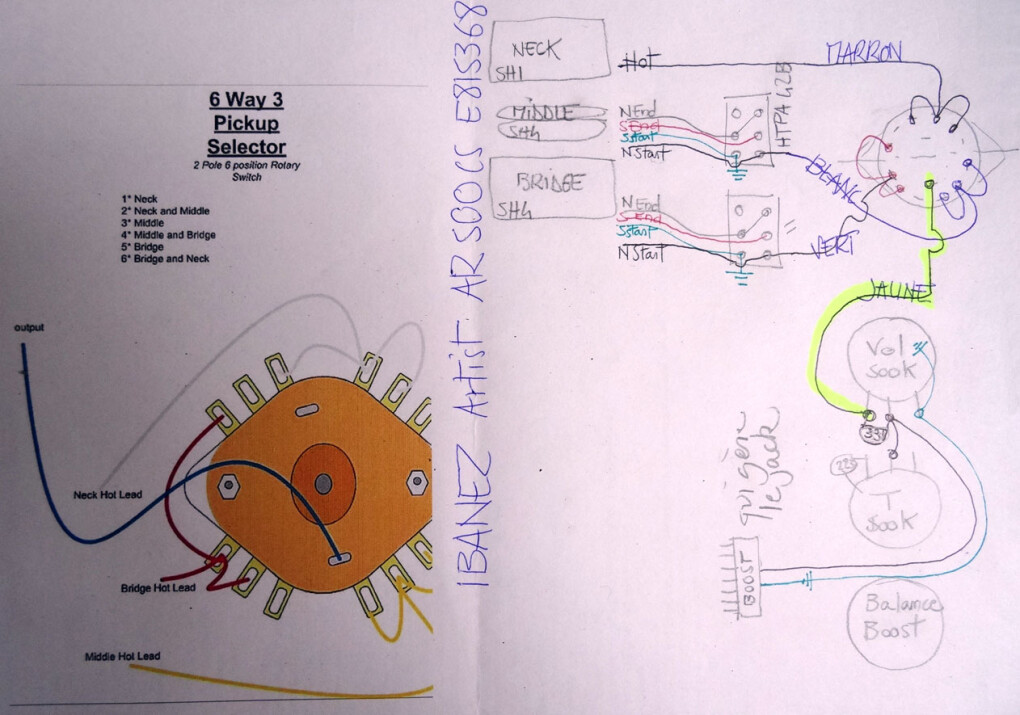 6 Way 3
Pickup
Selector
2 Pole 6 position Rotary
Switch
1* Neck
2* Neck and Middle
3* Middle
4* Middle and Bridge
5* Bridge
6* Bridge and Neck
output
Neck Hot Lead
Bridge Hot Lead
Middle Hot Lead
IBANEZ Artist AR500CS E815368
NECK
SH1
Hot
MARRON
MiDDLE
SH4
N End
S End
S Start
N Start
HTPA42B
BLANC
BRIDGE
SH4
N End
S End
S Start
N Start
"
VERT
JAUNE
Vol
500K
331
223
T
500K
qui gène
le jack
BOOST
Balance
Boost